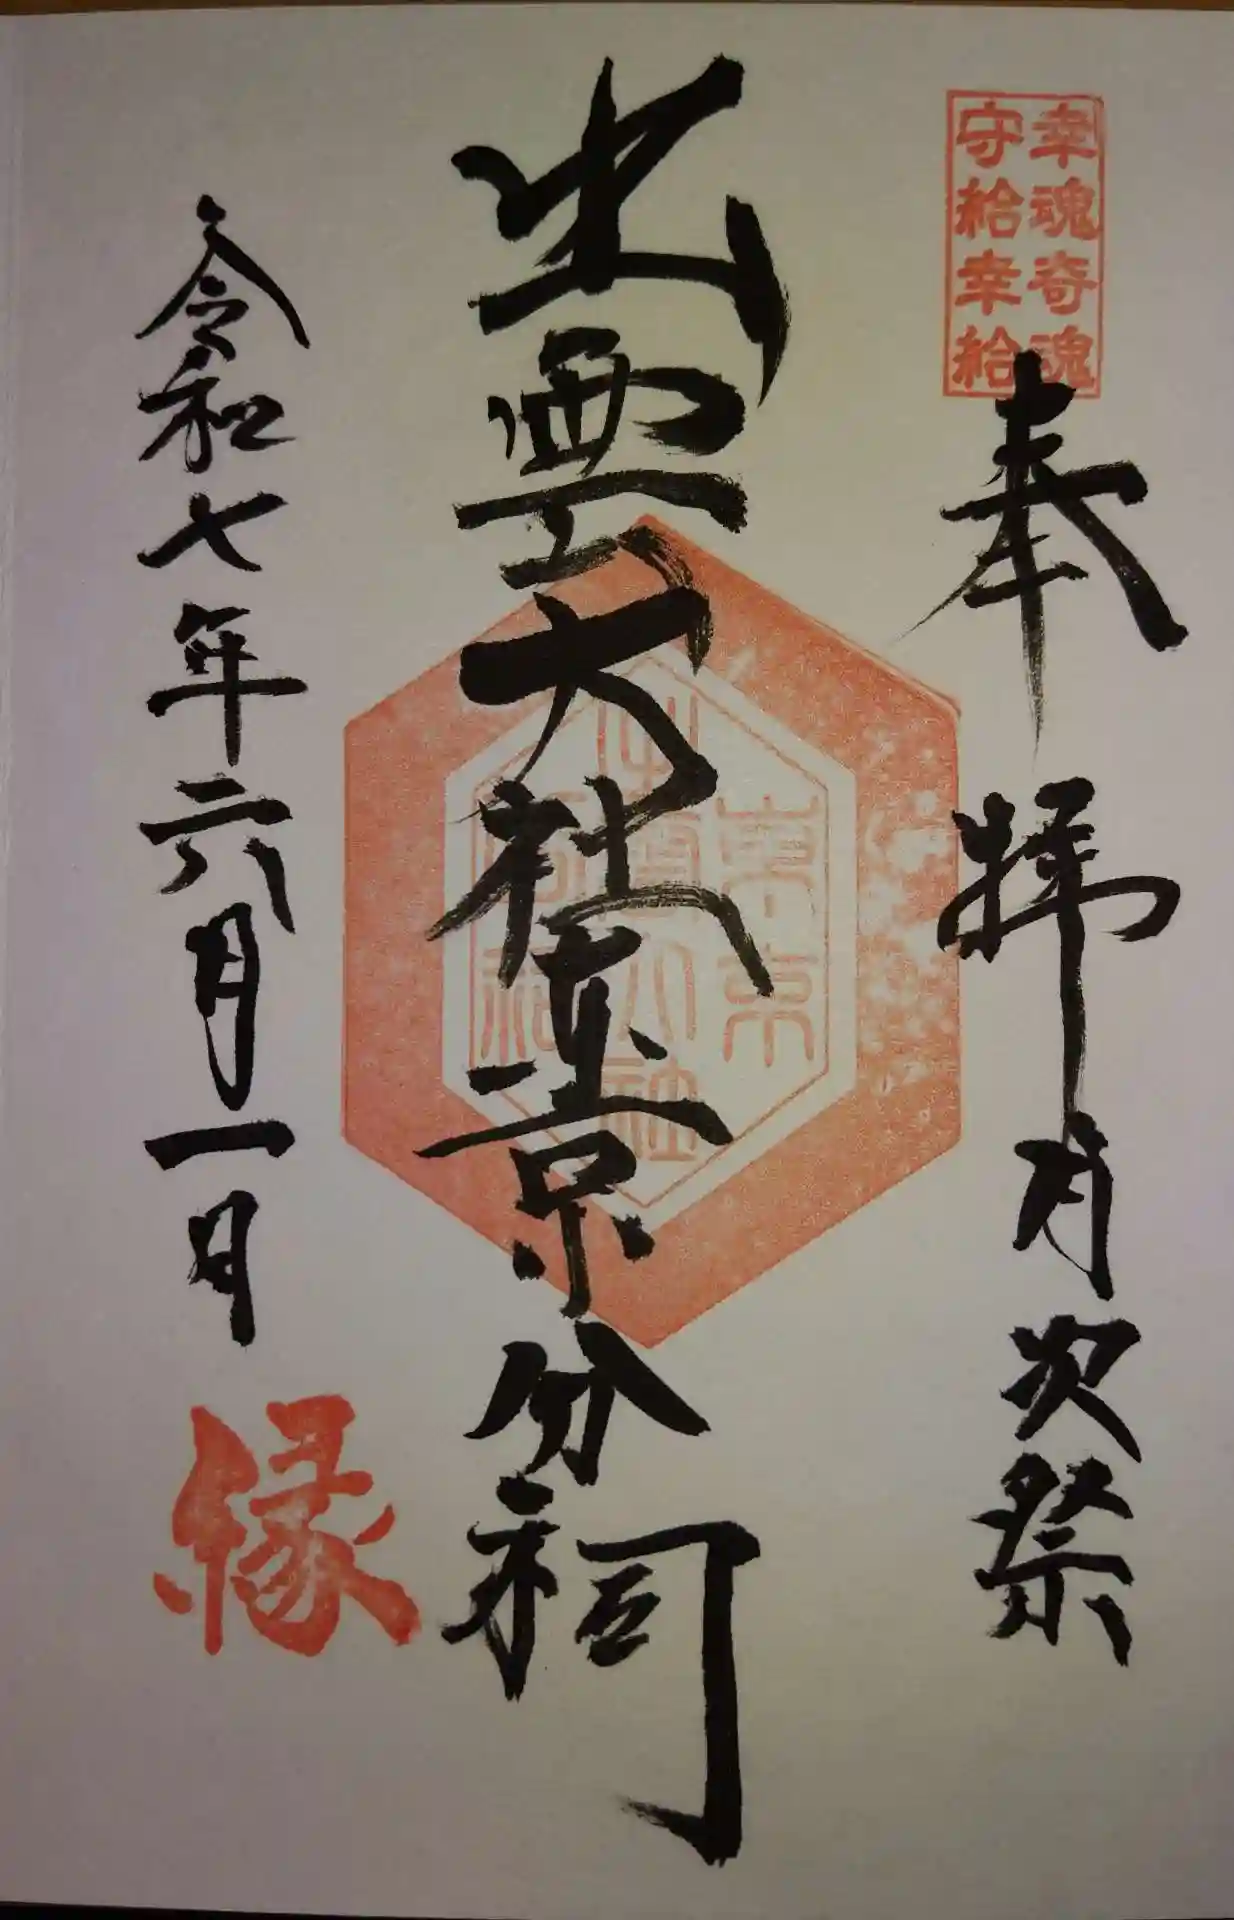 幸魂奇魂
守給幸給
奉拝月次祭
出雲大社東京分祠
東京
出雲大社
分祠
令和七年六月一日
縁